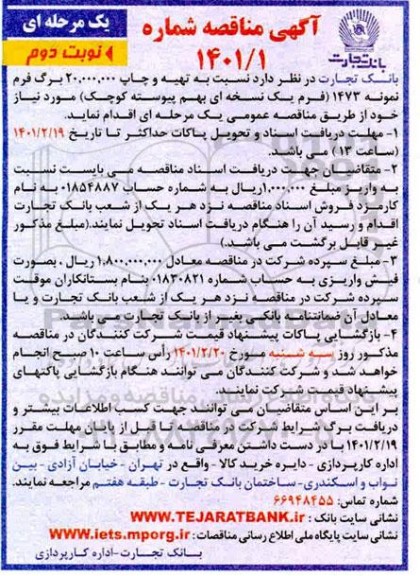 آگهی مناقصه شماره
۱۴۰۱/۱
یک مرحله ای
نوبت دوم
بانک تجارت
بانک تجارت در نظر دارد نسبت به تهیه و چاپ ۲۰,۰۰۰,۰۰۰ برگ فرم
نمونه ۱۴۷۳ (فرم یک نسخه ای بهم پیوسته کوچک) مورد نیاز
خود از طریق مناقصه عمومی یک مرحله ای اقدام نماید.
۱- مهلت دریافت اسناد و تحویل پاکات حداکثر تا تاریخ ۱۴۰۱/۲/۱۹
(ساعت ۱۳) می باشد.
۲- متقاضیان جهت دریافت اسناد مناقصه می بایست نسبت
به واریز مبلغ ۱,۰۰۰,۰۰۰ریال به شماره حساب ۰۱۸۵۴۸۸۷ به نام
کارمزد فروش اسناد مناقصه نزد هر یک از شعب بانک تجارت
اقدام و رسید آن را هنگام دریافت اسناد تحویل نمایند.(مبلغ مذکور
غیر قابل برگشت می باشد.)
۳- مبلغ سپرده شرکت در مناقصه معادل ۱,۸۰۰,۰۰۰,۰۰۰ ریال ، بصورت
فیش واریزی به حساب شماره ۰۱۸۳۰۸۲۱ بنام بستانکاران موقت
سپرده شرکت در مناقصه نزد هر یک از شعب بانک تجارت و یا
معادل آن ضمانتنامه بانکی بغیر از بانک تجارت می باشد.
۴- بازگشایی پاکات پیشنهاد قیمت شرکت کنندگان در مناقصه
مذکور روز سه شنبه مورخ ۱۴۰۱/۲/۲۰ رأس ساعت ۱۰ صبح انجام
خواهد شد و شرکت کنندگان می توانند هنگام بازگشایی پاکتهای
پیشنهاد قیمت شرکت نمایند.
بر این اساس متقاضیان می توانند جهت کسب اطلاعات بیشتر و
دریافت برگ شرایط شرکت در مناقصه تا قبل از پایان مهلت مقرر
۱۴۰۱/۲/۱۹ با در دست داشتن معرفی نامه و مطابق با شرایط فوق به
اداره کارپردازی - دایره خرید کالا - واقع در تهران - خیابان آزادی - بین
نواب و اسکندری- ساختمان بانک تجارت - طبقه هفتم مراجعه نمایند.
شماره تماس: ۶۶۹۴۸۴۵۵
نشانی سایت بانک : WWW.TEJARATBANK.ir
نشانی سایت پایگاه ملی اطلاع رسانی مناقصات : www.iets.mporg.ir
بانک تجارت-اداره کارپردازی